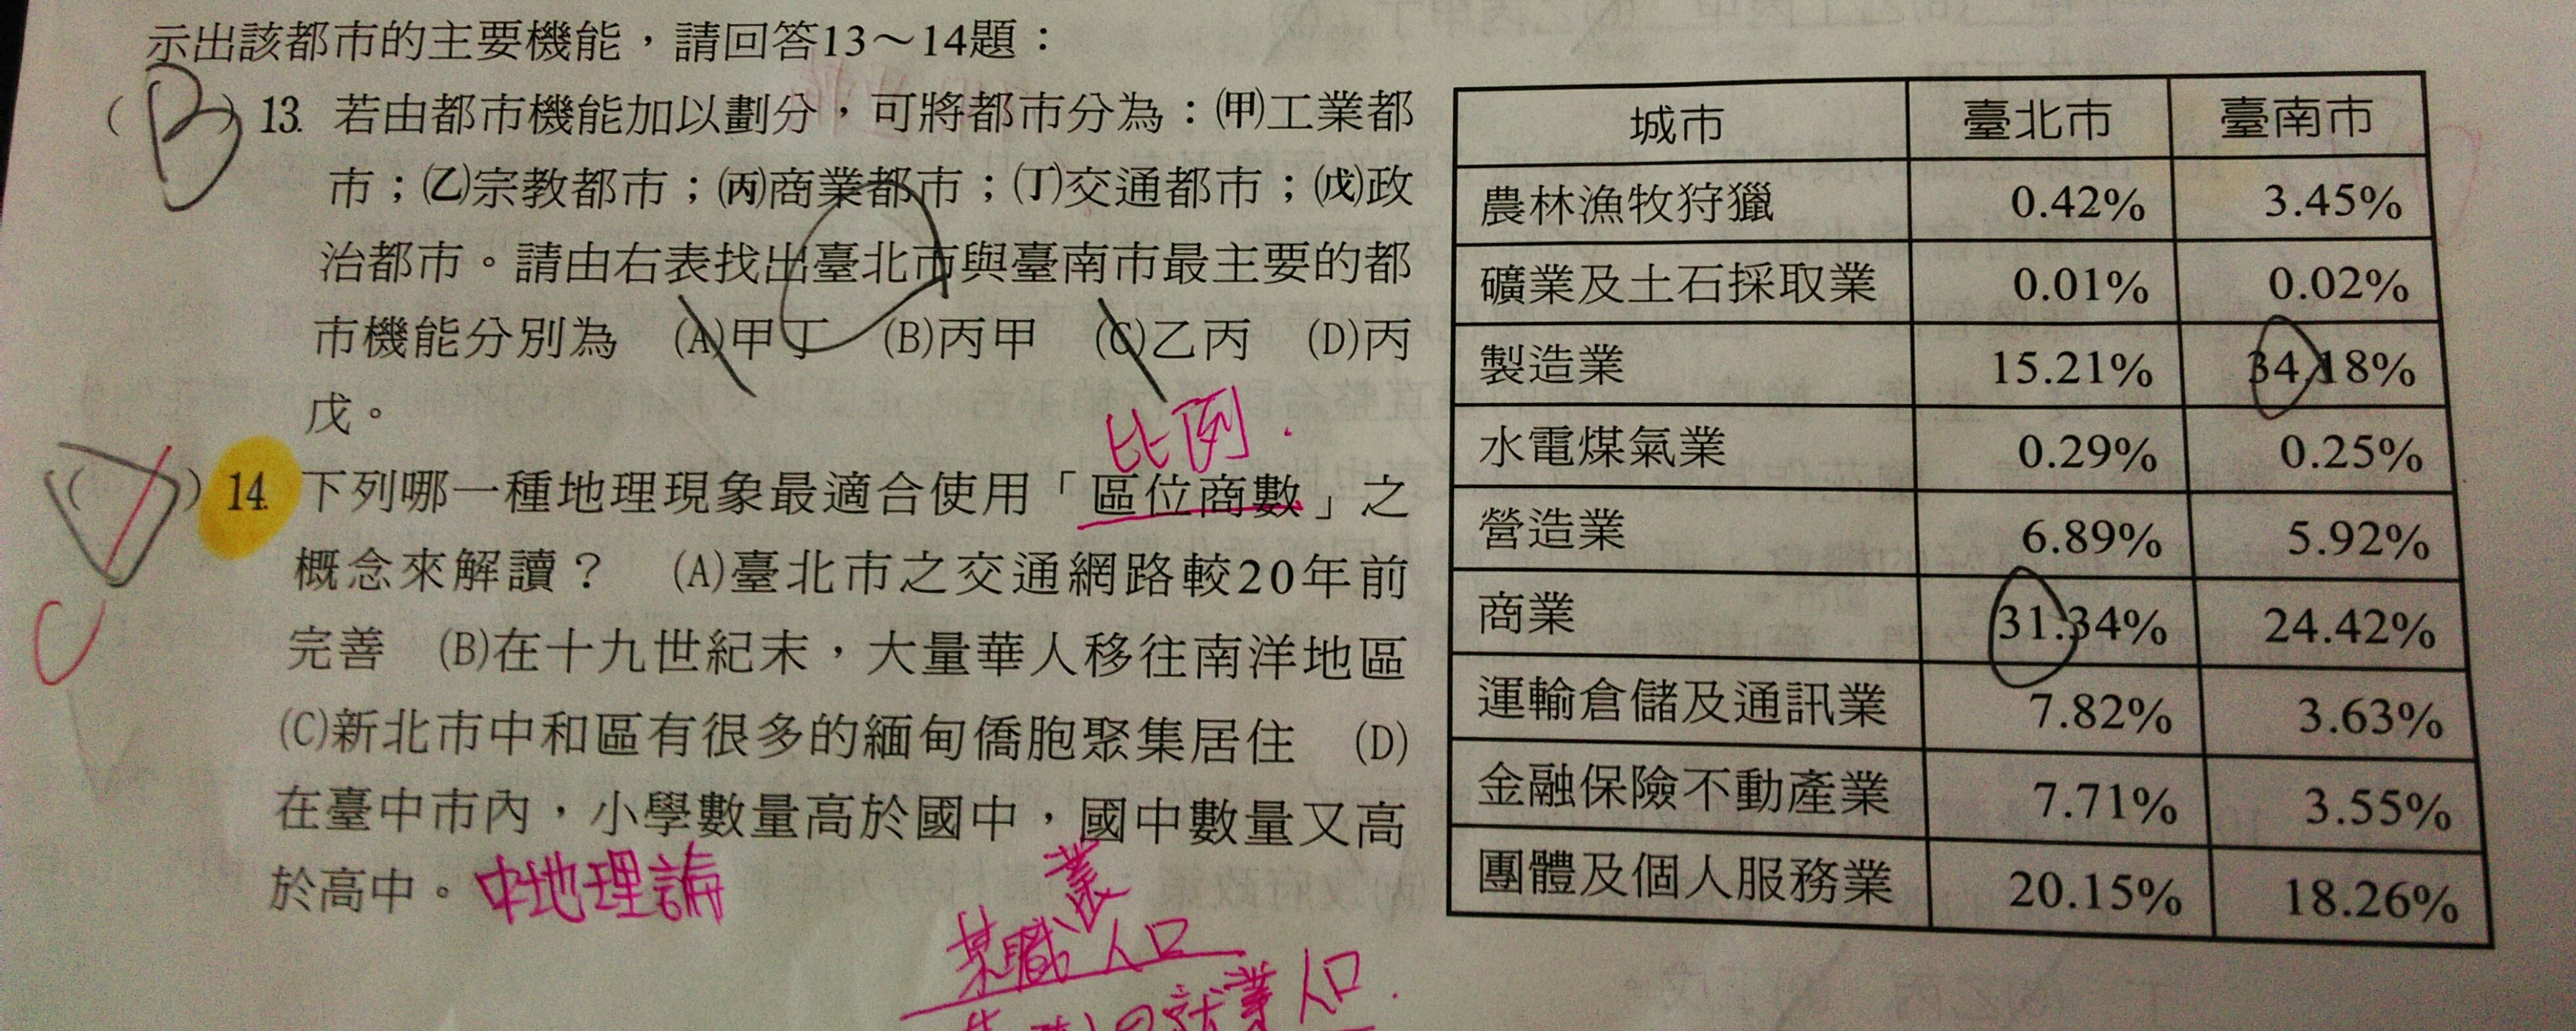 示出該都市的主要機能，請回答13～14題：
(B) 13. 若由都市機能加以劃分，可將都市分為：㈙工業都
市；㈚宗教都市；㈛商業都市；㈜交通都市；(戊)政
治都市。請由右表找出臺北市與臺南市最主要的都
市機能分別為 (A)甲丁 (B)丙甲 (C)乙丙 (D)丙
戊。
比例.
( ) 14. 下列哪一種地理現象最適合使用「區位商數」之
概念來解讀？ (A)臺北市之交通網路較20年前
C 完善 (B)在十九世紀末，大量華人移往南洋地區
(C)新北市中和區有很多的緬甸僑胞聚集居住 (D)
在臺中市內，小學數量高於國中，國中數量又高
於高中。中地理論
某職業人口
就業人口.
城市 臺北市 臺南市
農林漁牧狩獵 0.42% 3.45%
礦業及土石採取業 0.01% 0.02%
製造業 15.21% 34.18%
水電煤氣業 0.29% 0.25%
營造業 6.89% 5.92%
商業 31.34% 24.42%
運輸倉儲及通訊業 7.82% 3.63%
金融保險不動產業 7.71% 3.55%
團體及個人服務業 20.15% 18.26%